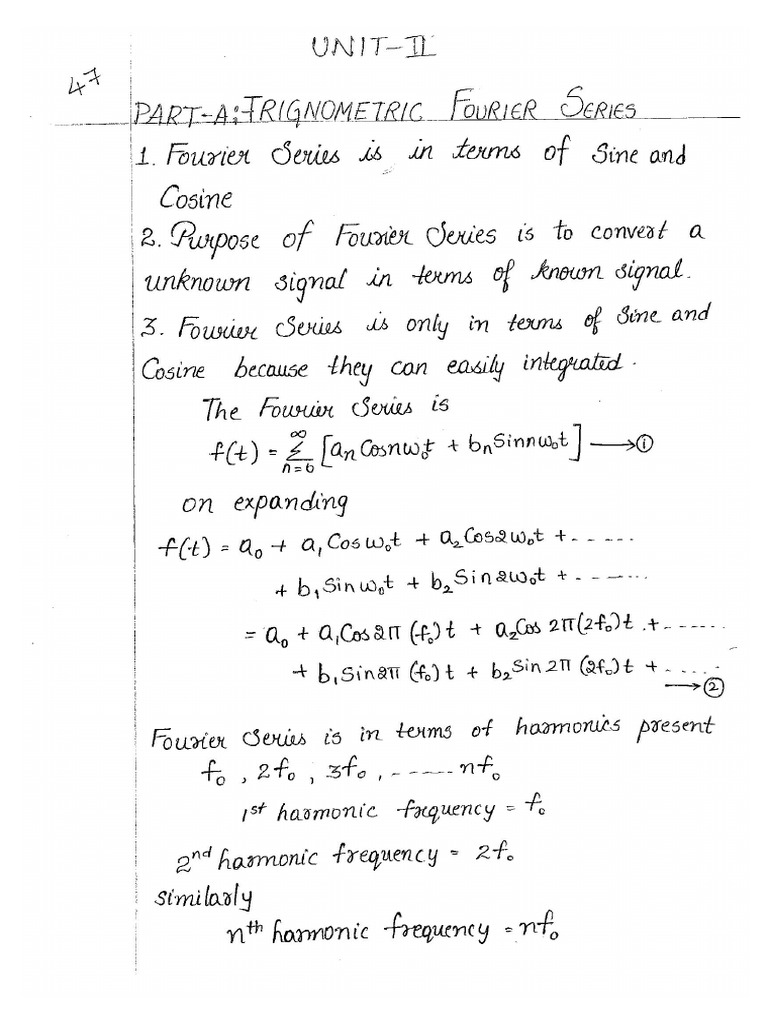 UNIT-II
47
PART-A:TRIGNOMETRIC FOURIER SERIES
1. Fourier Series is in terms of Sine and
Cosine
2. Purpose of Fourier Series is to convert a
unknown signal in terms of known signal.
3. Fourier Series is only in terms of Sine and
Cosine because they can easily integrated.
The Fourier Series is
f(t) = ∞ Σ n=0 [an Cosnω₀t + bn Sinnω₀t] ⟶ ①
on expanding
f(t) = a₀ + a₁Cosω₀t + a₂Cos2ω₀t + ------
+ b₁Sinω₀t + b₂Sin2ω₀t + -------
= a₀ + a₁Cos2π(f₀)t + a₂Cos2π(2f₀)t + -------
+ b₁Sin2π(f₀)t + b₂Sin2π(2f₀)t + .....
⟶ ②
Fourier Series is in terms of harmonics present
f₀, 2f₀, 3f₀, ------ nf₀
1st harmonic frequency = f₀
2nd harmonic frequency = 2f₀
similarly
nth harmonic frequency = nf₀